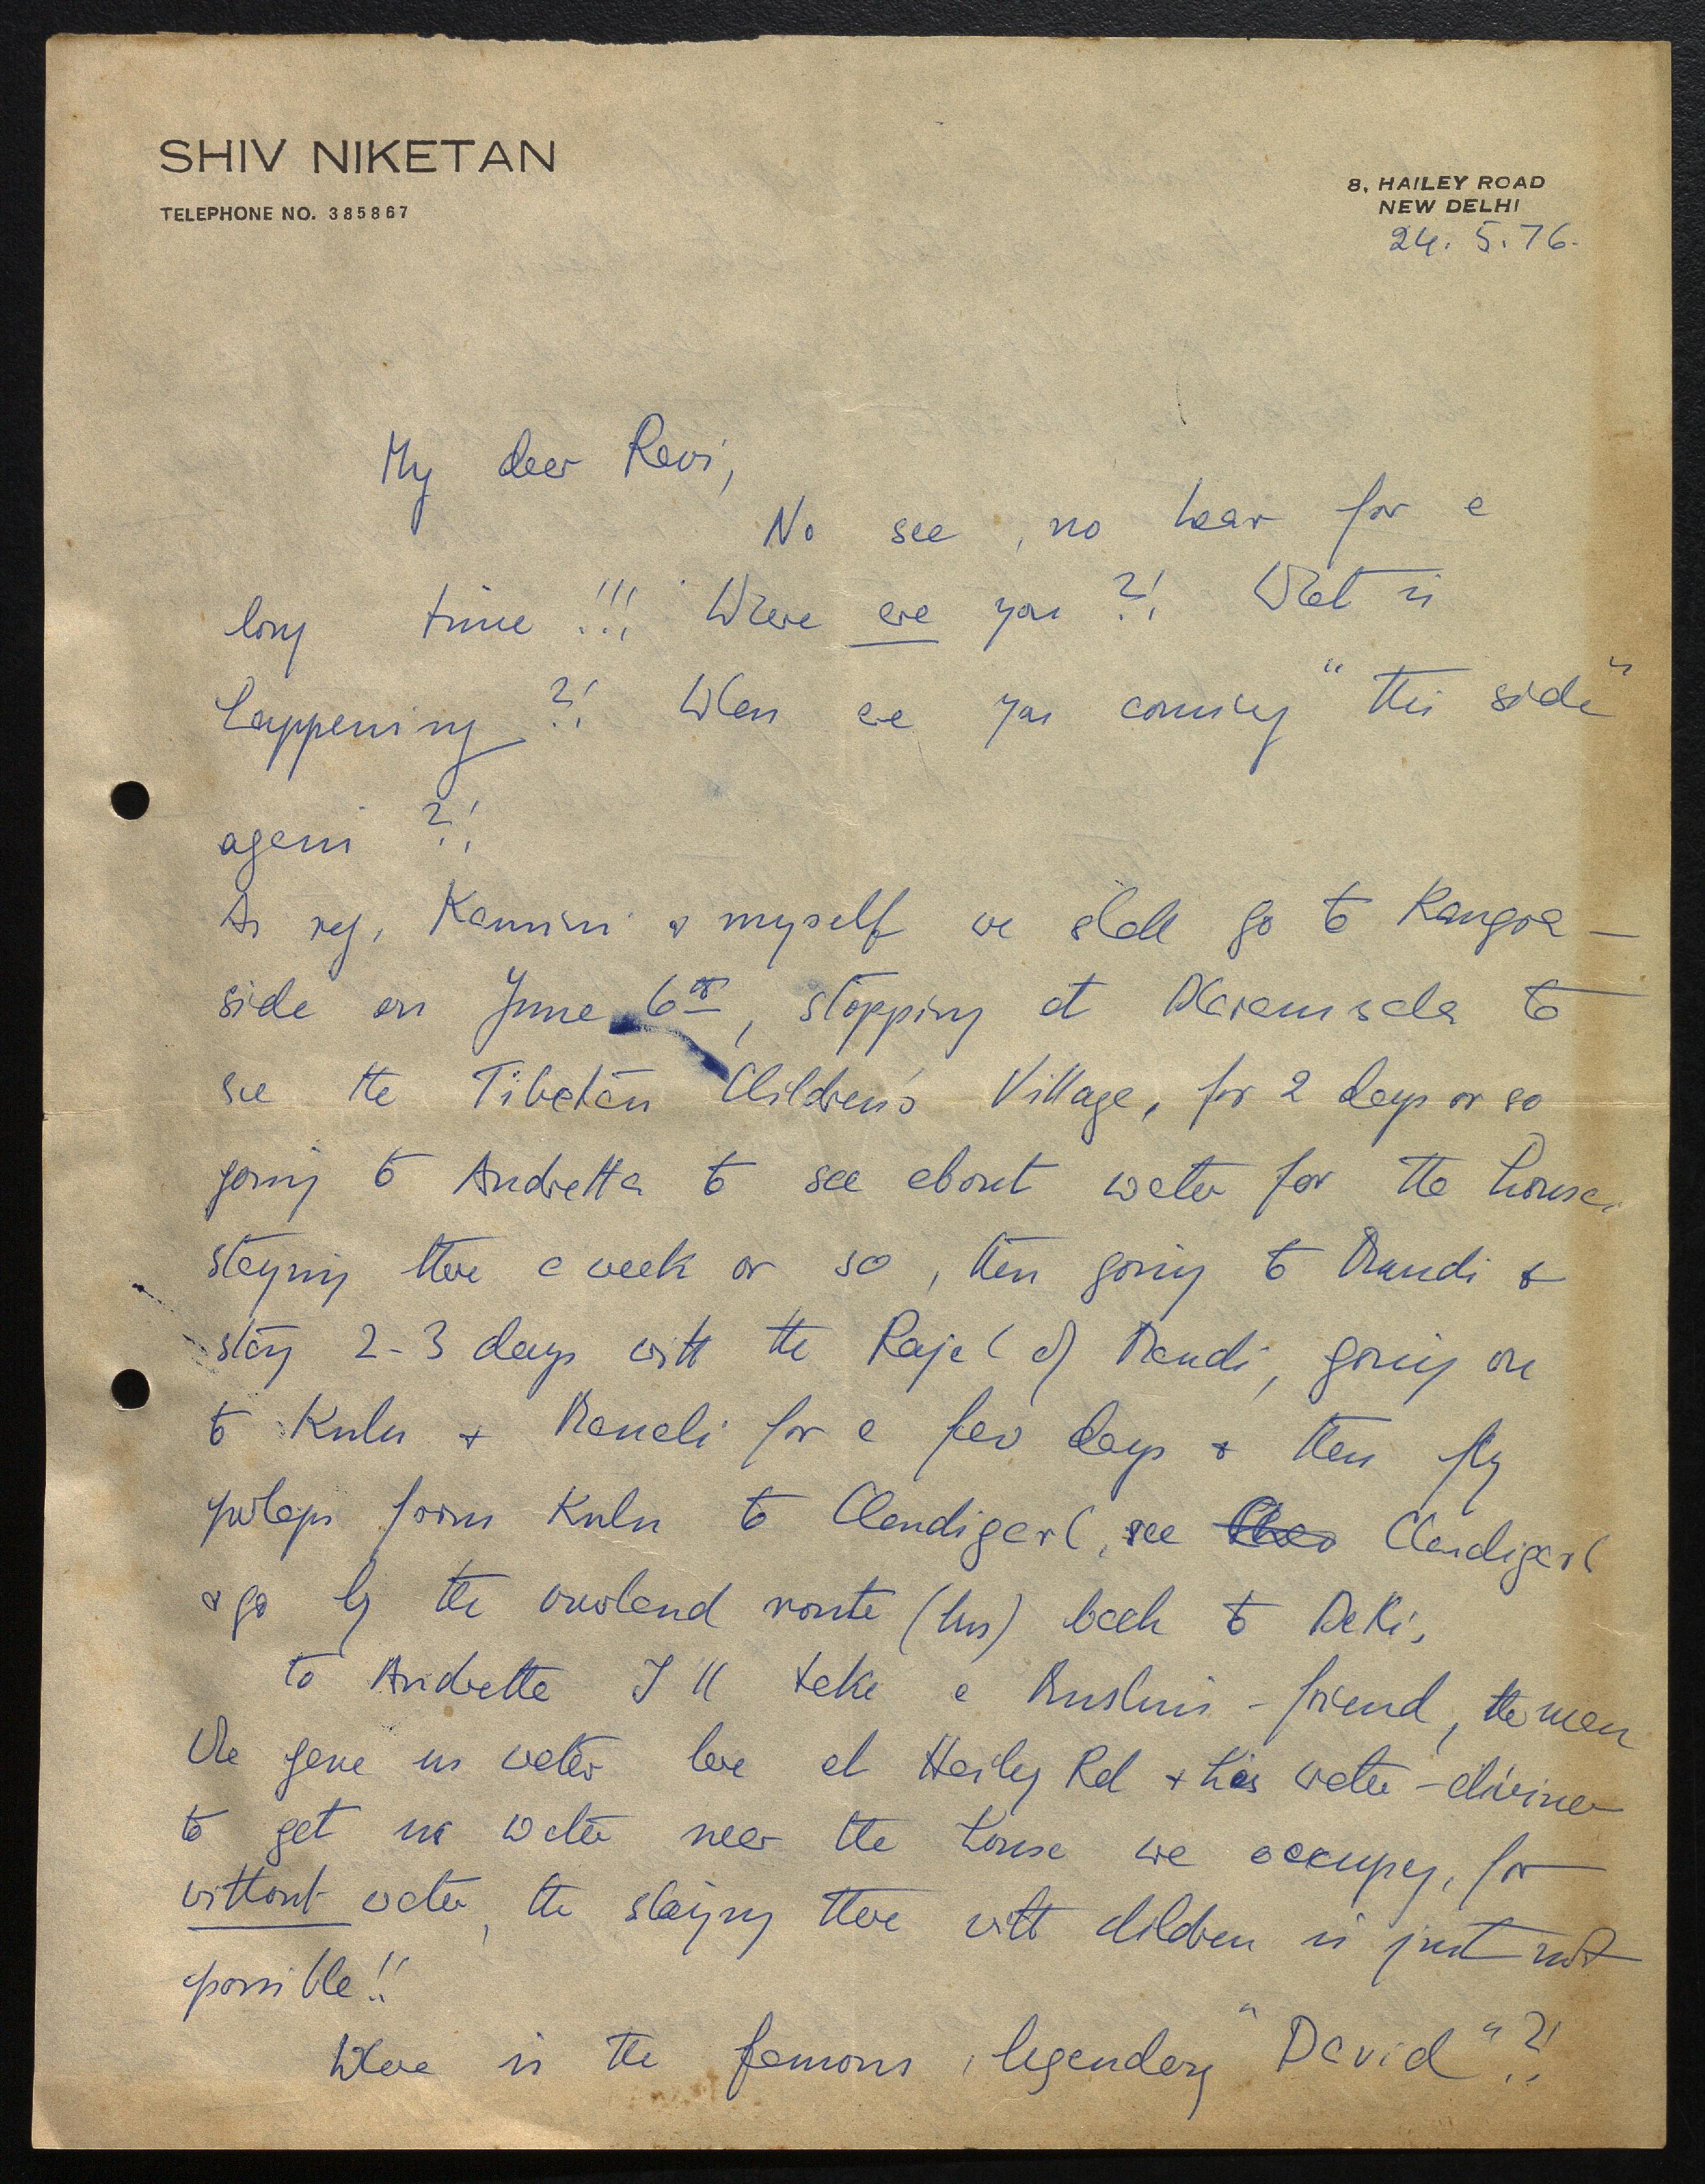 SHIV NIKETAN
TELEPHONE NO. 385867
8, HAILEY ROAD
NEW DELHI
24. 5. 76.
My dear Ravi,
No see, no hear for a
long time!!! Where are you?! What is
happening?! When are you coming "this side"
again?!
As reg. Kamini & myself we shall go to Kangra -
side on June 6th, stopping at Daramsala to
see the Tibetan Children's Village, for 2 days or so
going to Andretta to see about water for the house,
staying there a week or so, then going to Mandi &
stay 2-3 days with the Rajah of Mandi, going on
to Kulu & Manali for a few days & then fly
perhaps from Kulu to Chandigarh, see Chandigarh
& go by the overland route (bus) back to Delhi,
to Andretta I'll take a Muslim - friend, the man
who gave us water here at Hailey Rd & his water - diviner
to get us water near the house we occupy, for
without water, the staying there with children is just not
possible!!
Where is the famous, legendary "David"?!